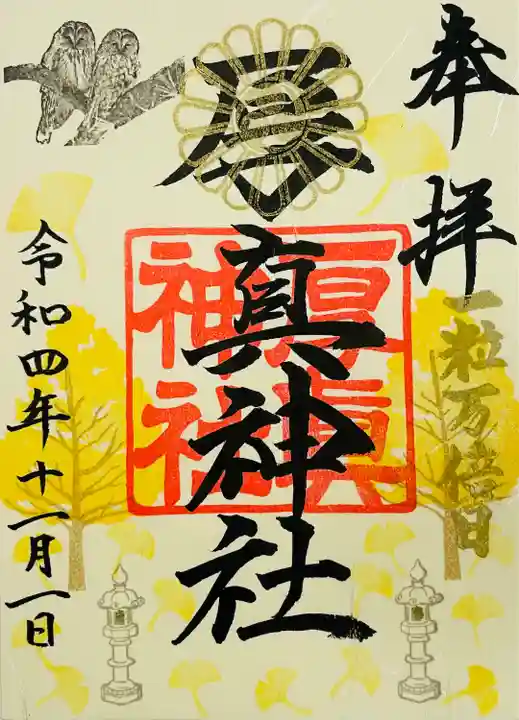 奉拝
一粒万倍日
厚真神社
厚真
神社
令和四年十一月一日